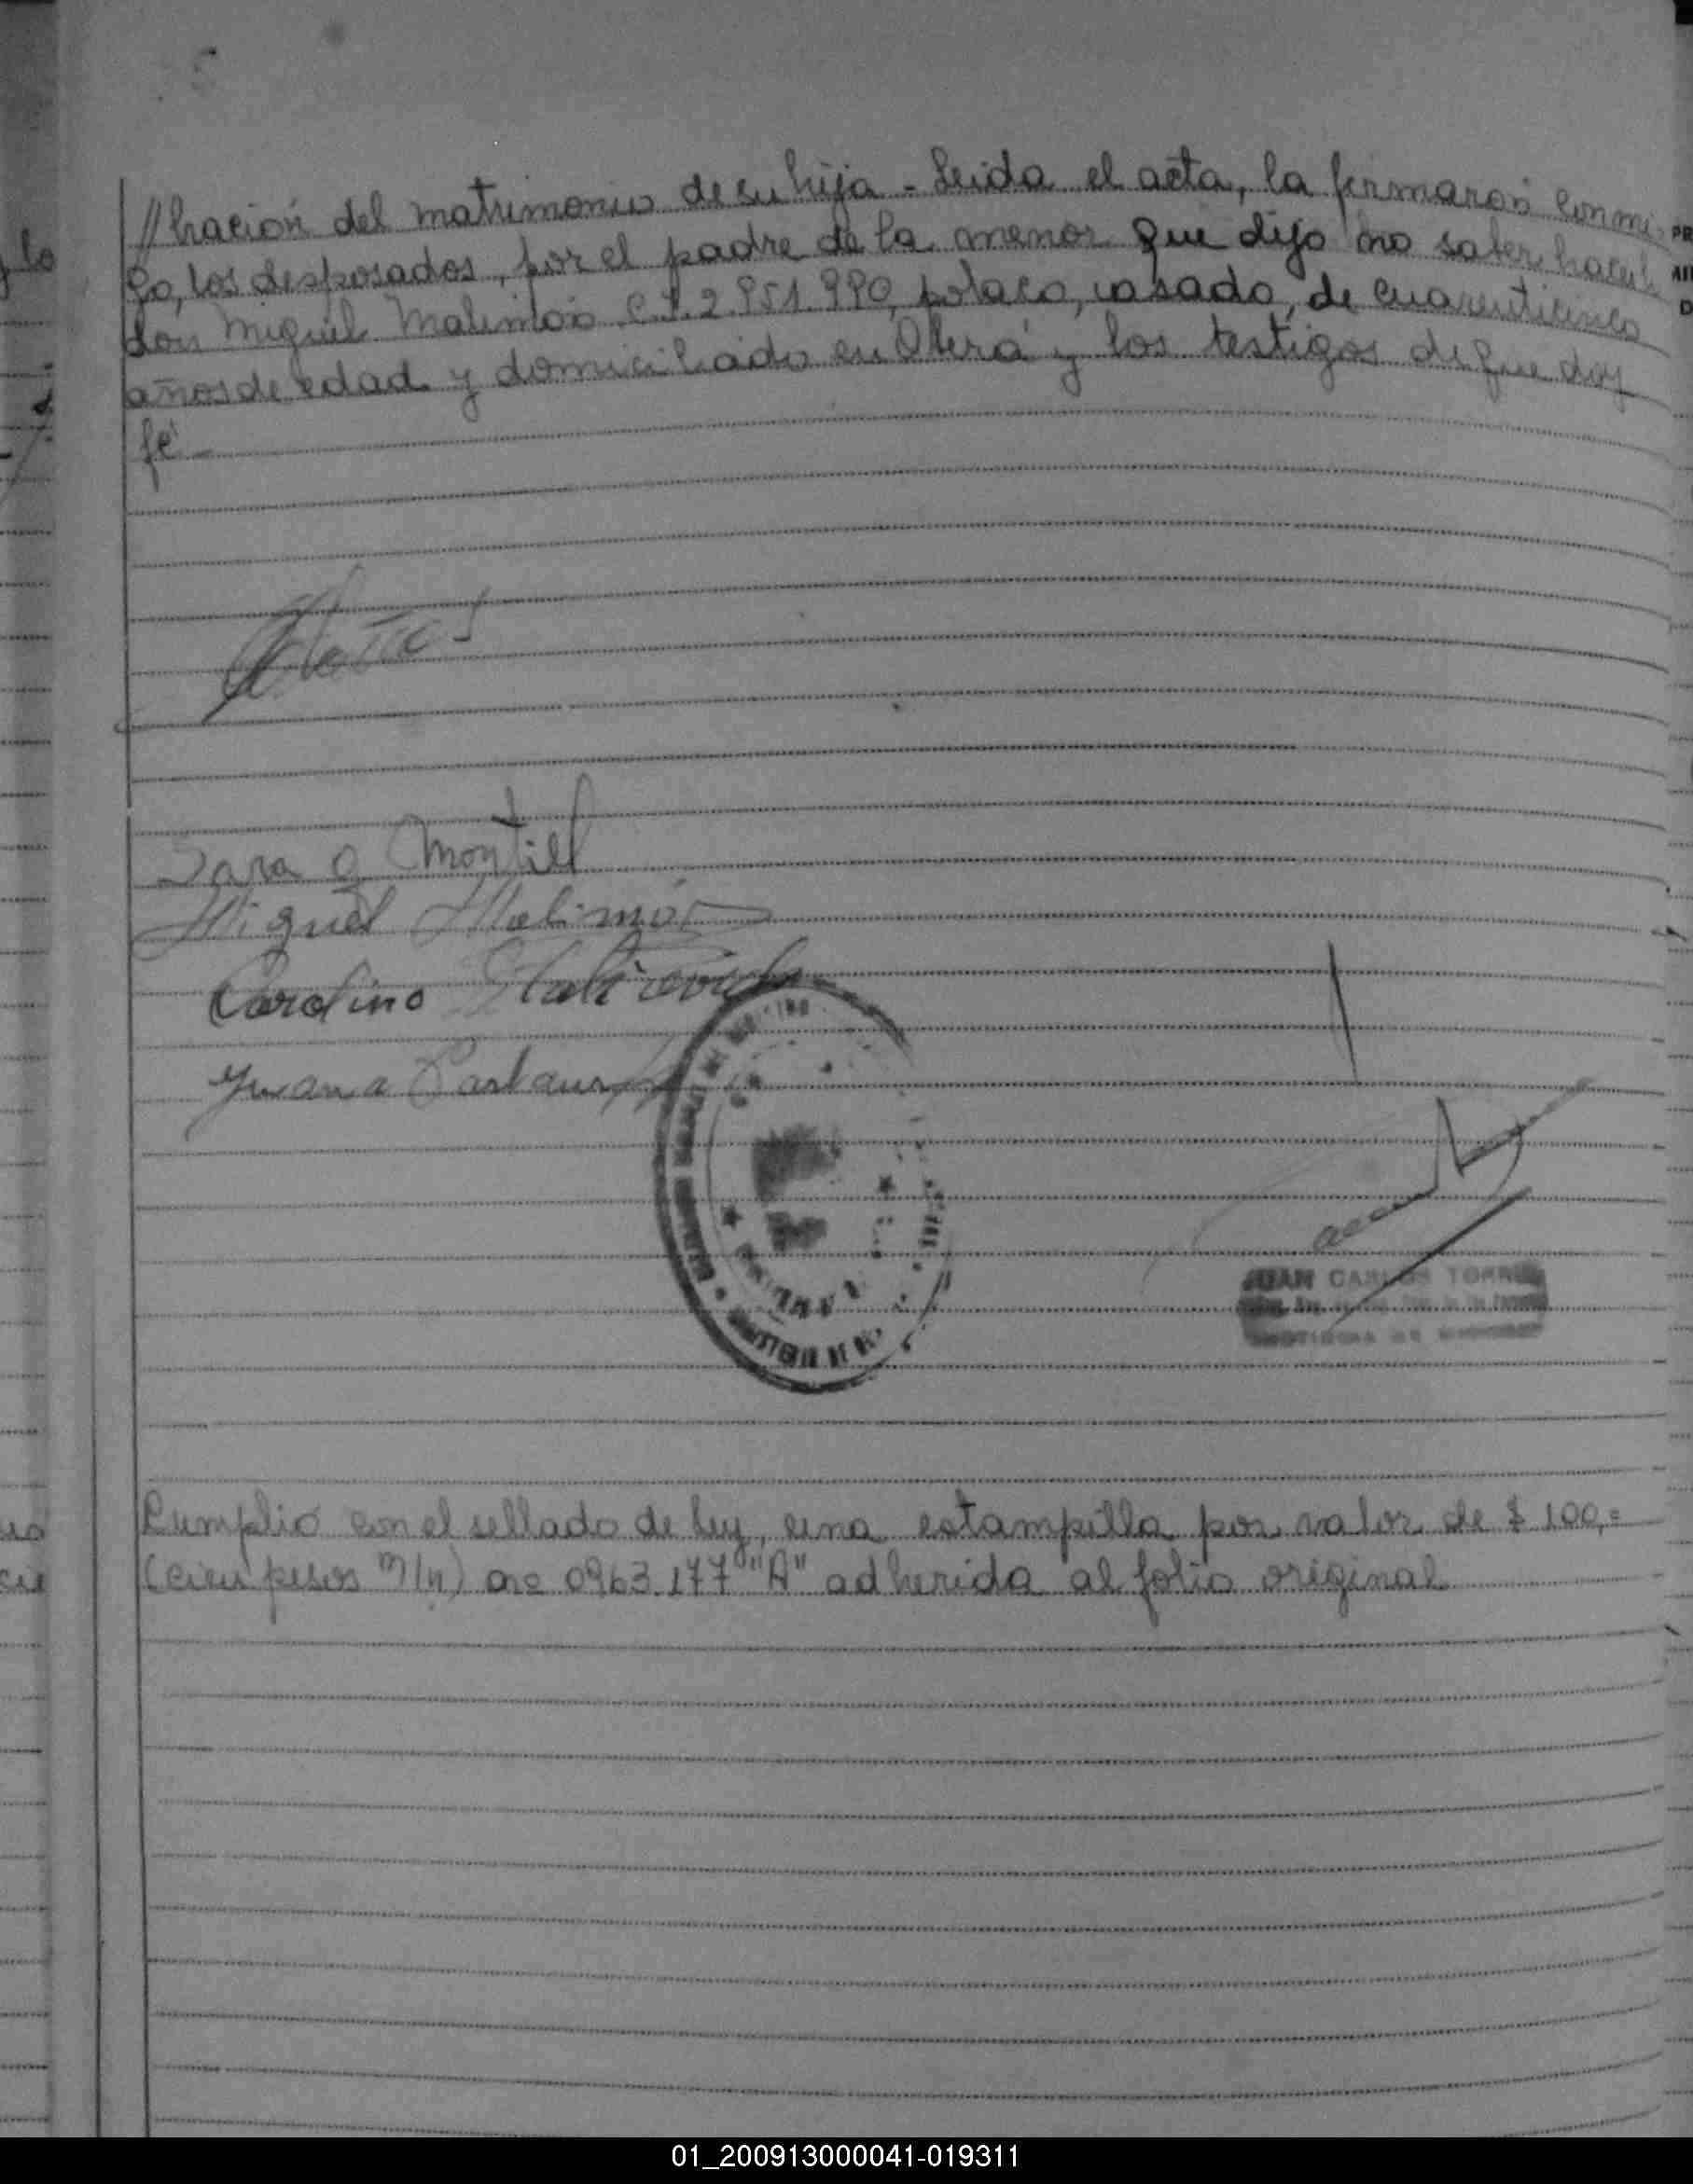 //bración del matrimonio de su hija - Leida el acta, la firmaron conmi
go, los desposados, por el padre de la menor que dijo no saber hacerlo
don Miguel Malimón C.I. 2.851.990, polaco, casado, de cuarenticinco
años de edad y domiciliado en Oberá y los testigos de que doy
fé -
Sara G Montiel
Miguel Malimón
Carolino
Juana
JUAN CARLOS TORRES
Cumplió con el sellado de ley, una estampilla por valor de $ 100,=
(cien pesos m/n) no 0963.177 "A" adherida al folio original
01_200913000041-019311